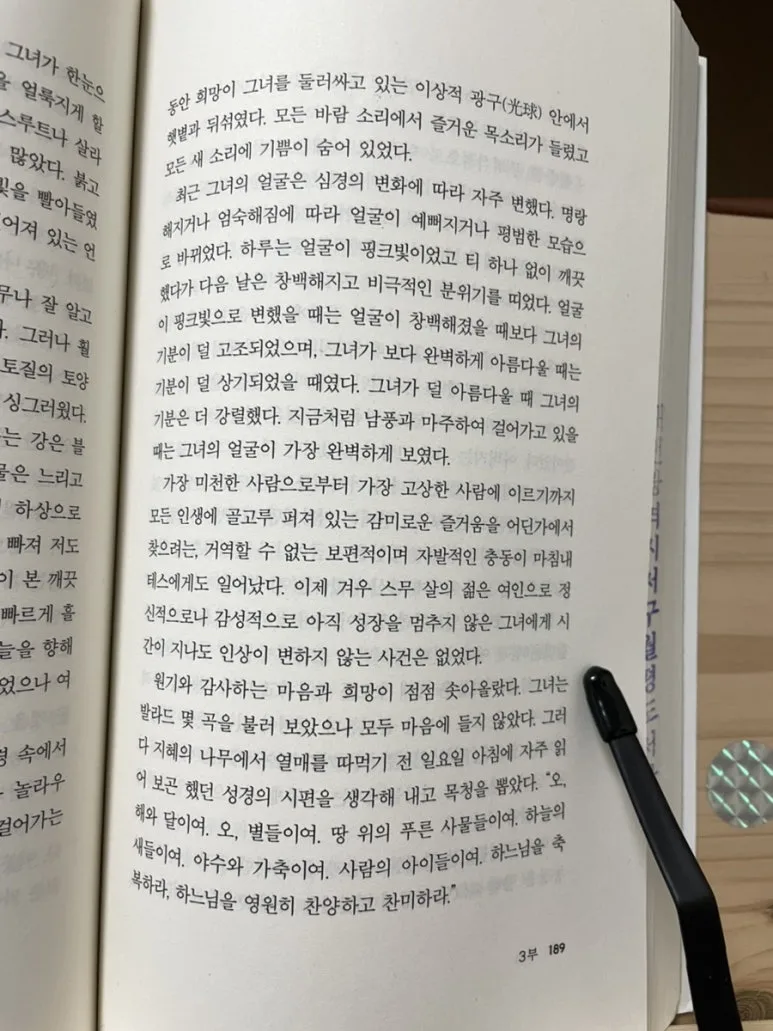 그녀가 한눈으
을 얼룩지게 할
스루트나 살라
많았다. 붉고
빛을 빨아들였
어져 있는 언
무나 잘 알고
다. 그러나 훨
토질의 토양
싱그러웠다.
는 강은 블
물은 느리고
하상으로
빠져 저도
이 본 깨끗
빠르게 흘
늘을 향해
었으나 여
속에서
놀라우
걸어가는
동안 희망이 그녀를 둘러싸고 있는 이상적 광구(光球) 안에서
햇볕과 뒤섞였다. 모든 바람 소리에서 즐거운 목소리가 들렸고
모든 새 소리에 기쁨이 숨어 있었다.
최근 그녀의 얼굴은 심경의 변화에 따라 자주 변했다. 명랑
해지거나 엄숙해짐에 따라 얼굴이 예뻐지거나 평범한 모습으
로 바뀌었다. 하루는 얼굴이 핑크빛이었고 티 하나 없이 깨끗
했다가 다음 날은 창백해지고 비극적인 분위기를 띠었다. 얼굴
이 핑크빛으로 변했을 때는 얼굴이 창백해졌을 때보다 그녀의
기분이 덜 고조되었으며, 그녀가 보다 완벽하게 아름다울 때는
기분이 덜 상기되었을 때였다. 그녀가 덜 아름다울 때 그녀의
기분은 더 강렬했다. 지금처럼 남풍과 마주하여 걸어가고 있을
때는 그녀의 얼굴이 가장 완벽하게 보였다.
가장 미천한 사람으로부터 가장 고상한 사람에 이르기까지
모든 인생에 골고루 퍼져 있는 감미로운 즐거움을 어딘가에서
찾으려는, 거역할 수 없는 보편적이며 자발적인 충동이 마침내
테스에게도 일어났다. 이제 겨우 스무 살의 젊은 여인으로 정
신적으로나 감성적으로 아직 성장을 멈추지 않은 그녀에게 시
간이 지나도 인상이 변하지 않는 사건은 없었다.
원기와 감사하는 마음과 희망이 점점 솟아올랐다. 그녀는
발라드 몇 곡을 불러 보았으나 모두 마음에 들지 않았다. 그러
다 지혜의 나무에서 열매를 따먹기 전 일요일 아침에 자주 읽
어 보곤 했던 성경의 시편을 생각해 내고 목청을 뽑았다. "오,
해와 달이여. 오, 별들이여. 땅 위의 푸른 사물들이여. 하늘의
새들이여. 야수와 가축이여. 사람의 아이들이여. 하느님을 축
복하라, 하느님을 영원히 찬양하고 찬미하라."
3부 189